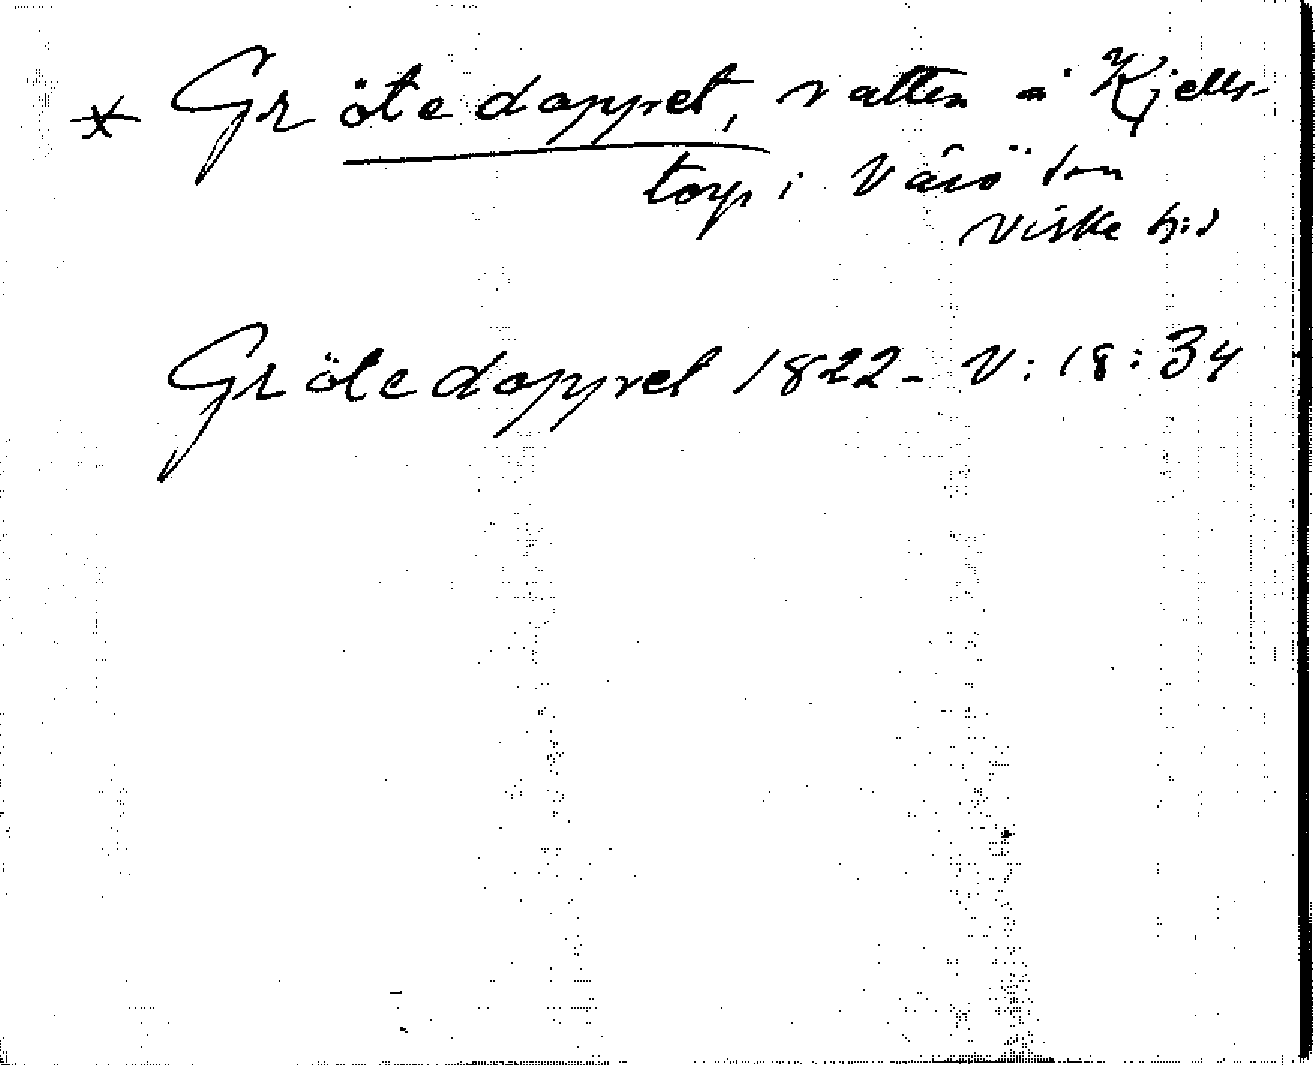 * Gröte doppet, vatten å Kjells-
torp i Värö sn
Viske hd
Gröte doppet 1822 - V: 18: 34